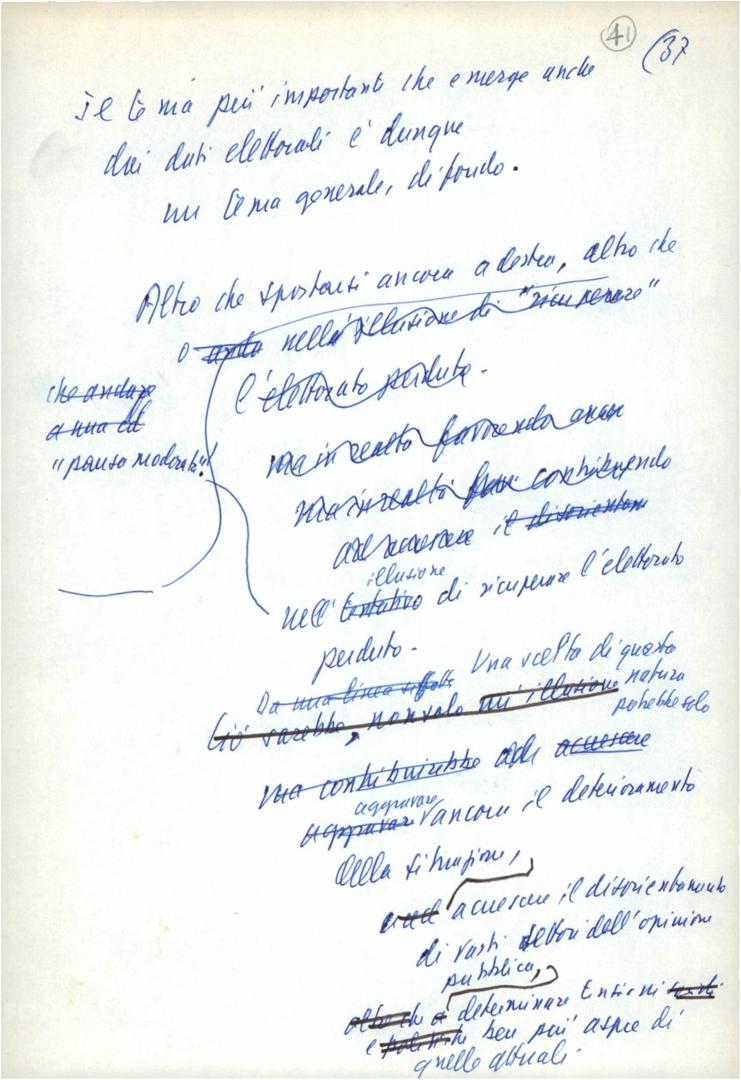 41
(37
Il tema più importante che emerge anche
dai dati elettorali è dunque
un tema generale, di fondo.
Altro che spostarsi ancora a destra, altro che
o nella illusione di "recuperare"
l'elettorato perduto.
che andare
a una
"pausa moderata"!
ma in realtà favorendo
ma in realtà contribuendo
ad accrescere il
illusione
nell'tentativo di recuperare l'elettorato
perduto.
Da una linea siffatta Una scelta di questa
natura
Ciò sarebbe, non solo un'illusione
potrebbe solo
ma contribuirebbe ad accrescere
aggravare
aggravare ancora il deterioramento
della situazione,
accrescere il disorientamento
di vasti settori dell'opinione
pubblica,
oltre che a determinare tensioni sociali
e politiche ben più aspre di
quelle attuali.